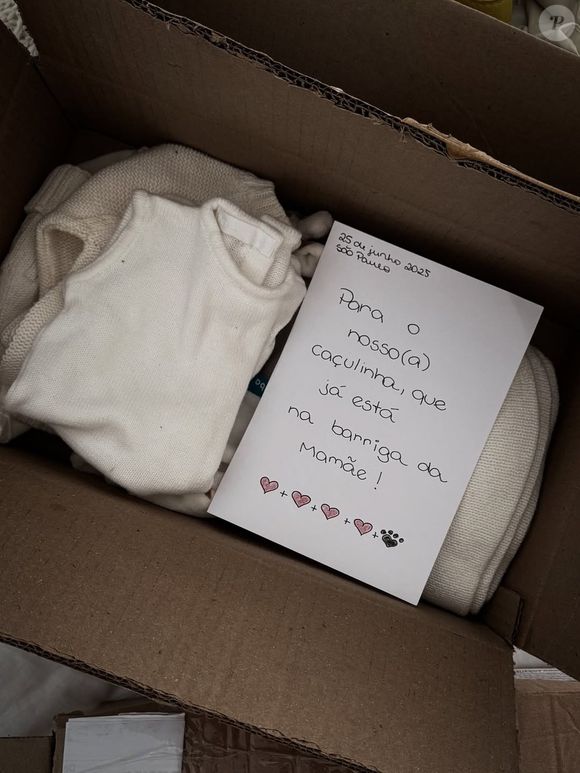 25 de junho 2025
São Paulo
Para o
nosso(a)
caçulinha, que
já está
na barriga da
Mamãe!
+ + + +
P